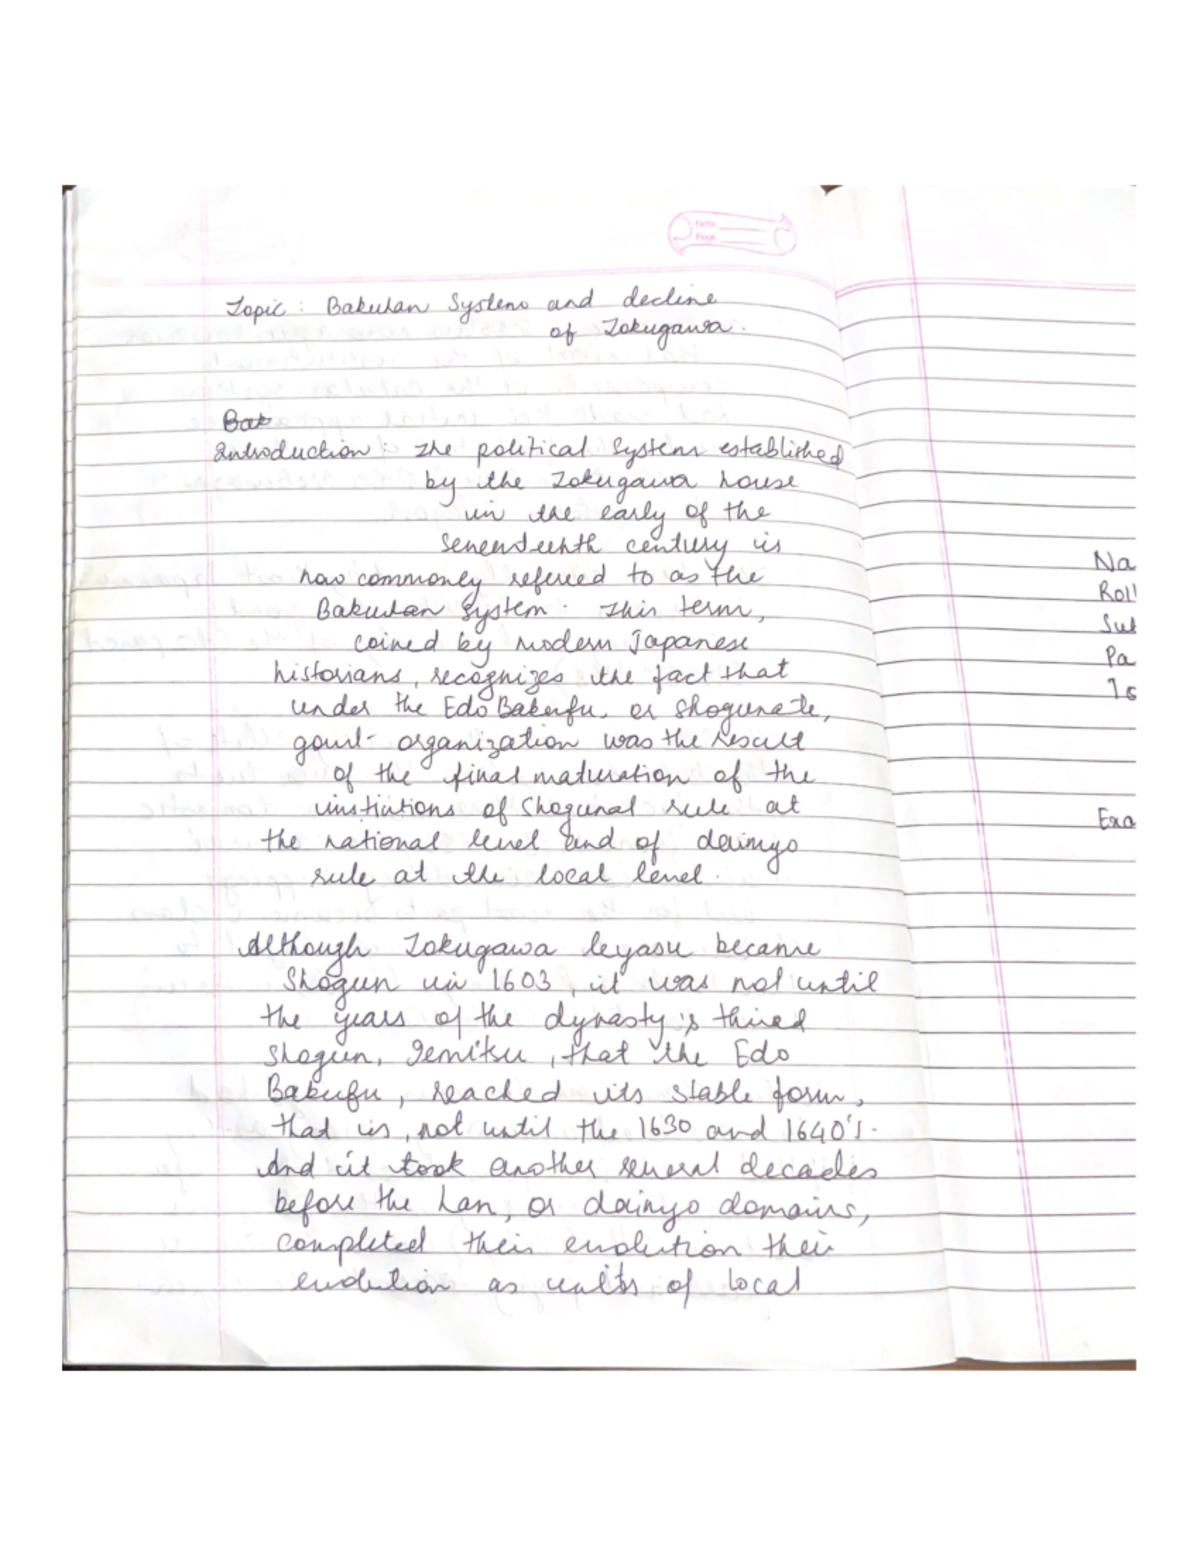 Date
Page
Topic : Bakuhan System and decline
of Tokugawa.
Bak
Introduction : The political system established
by the Tokugawa house
in the early of the
seneenteenth century is
now commonly refereed to as the
Bakuhan system. This term,
coined by modern Japanese
historians, recognizes the fact that
under the Edo Bakufu, or shogunate,
govt- organization was the result
of the final maturation of the
instiutions of Shogunal rule at
the national level and of daimyo
rule at the local level.
Although Tokugawa Ieyasu became
Shogun in 1603, it was not until
the years of the dynasty's third
shogun, Iemitsu, that the Edo
Bakufu, reached its stable form,
that is, not until the 1630 and 1640's.
And it took another several decades
before the han, or daimyo domains,
completed their evolution their
evolution as units of local
Na
Roll
Sub
Pa
Is
Exa